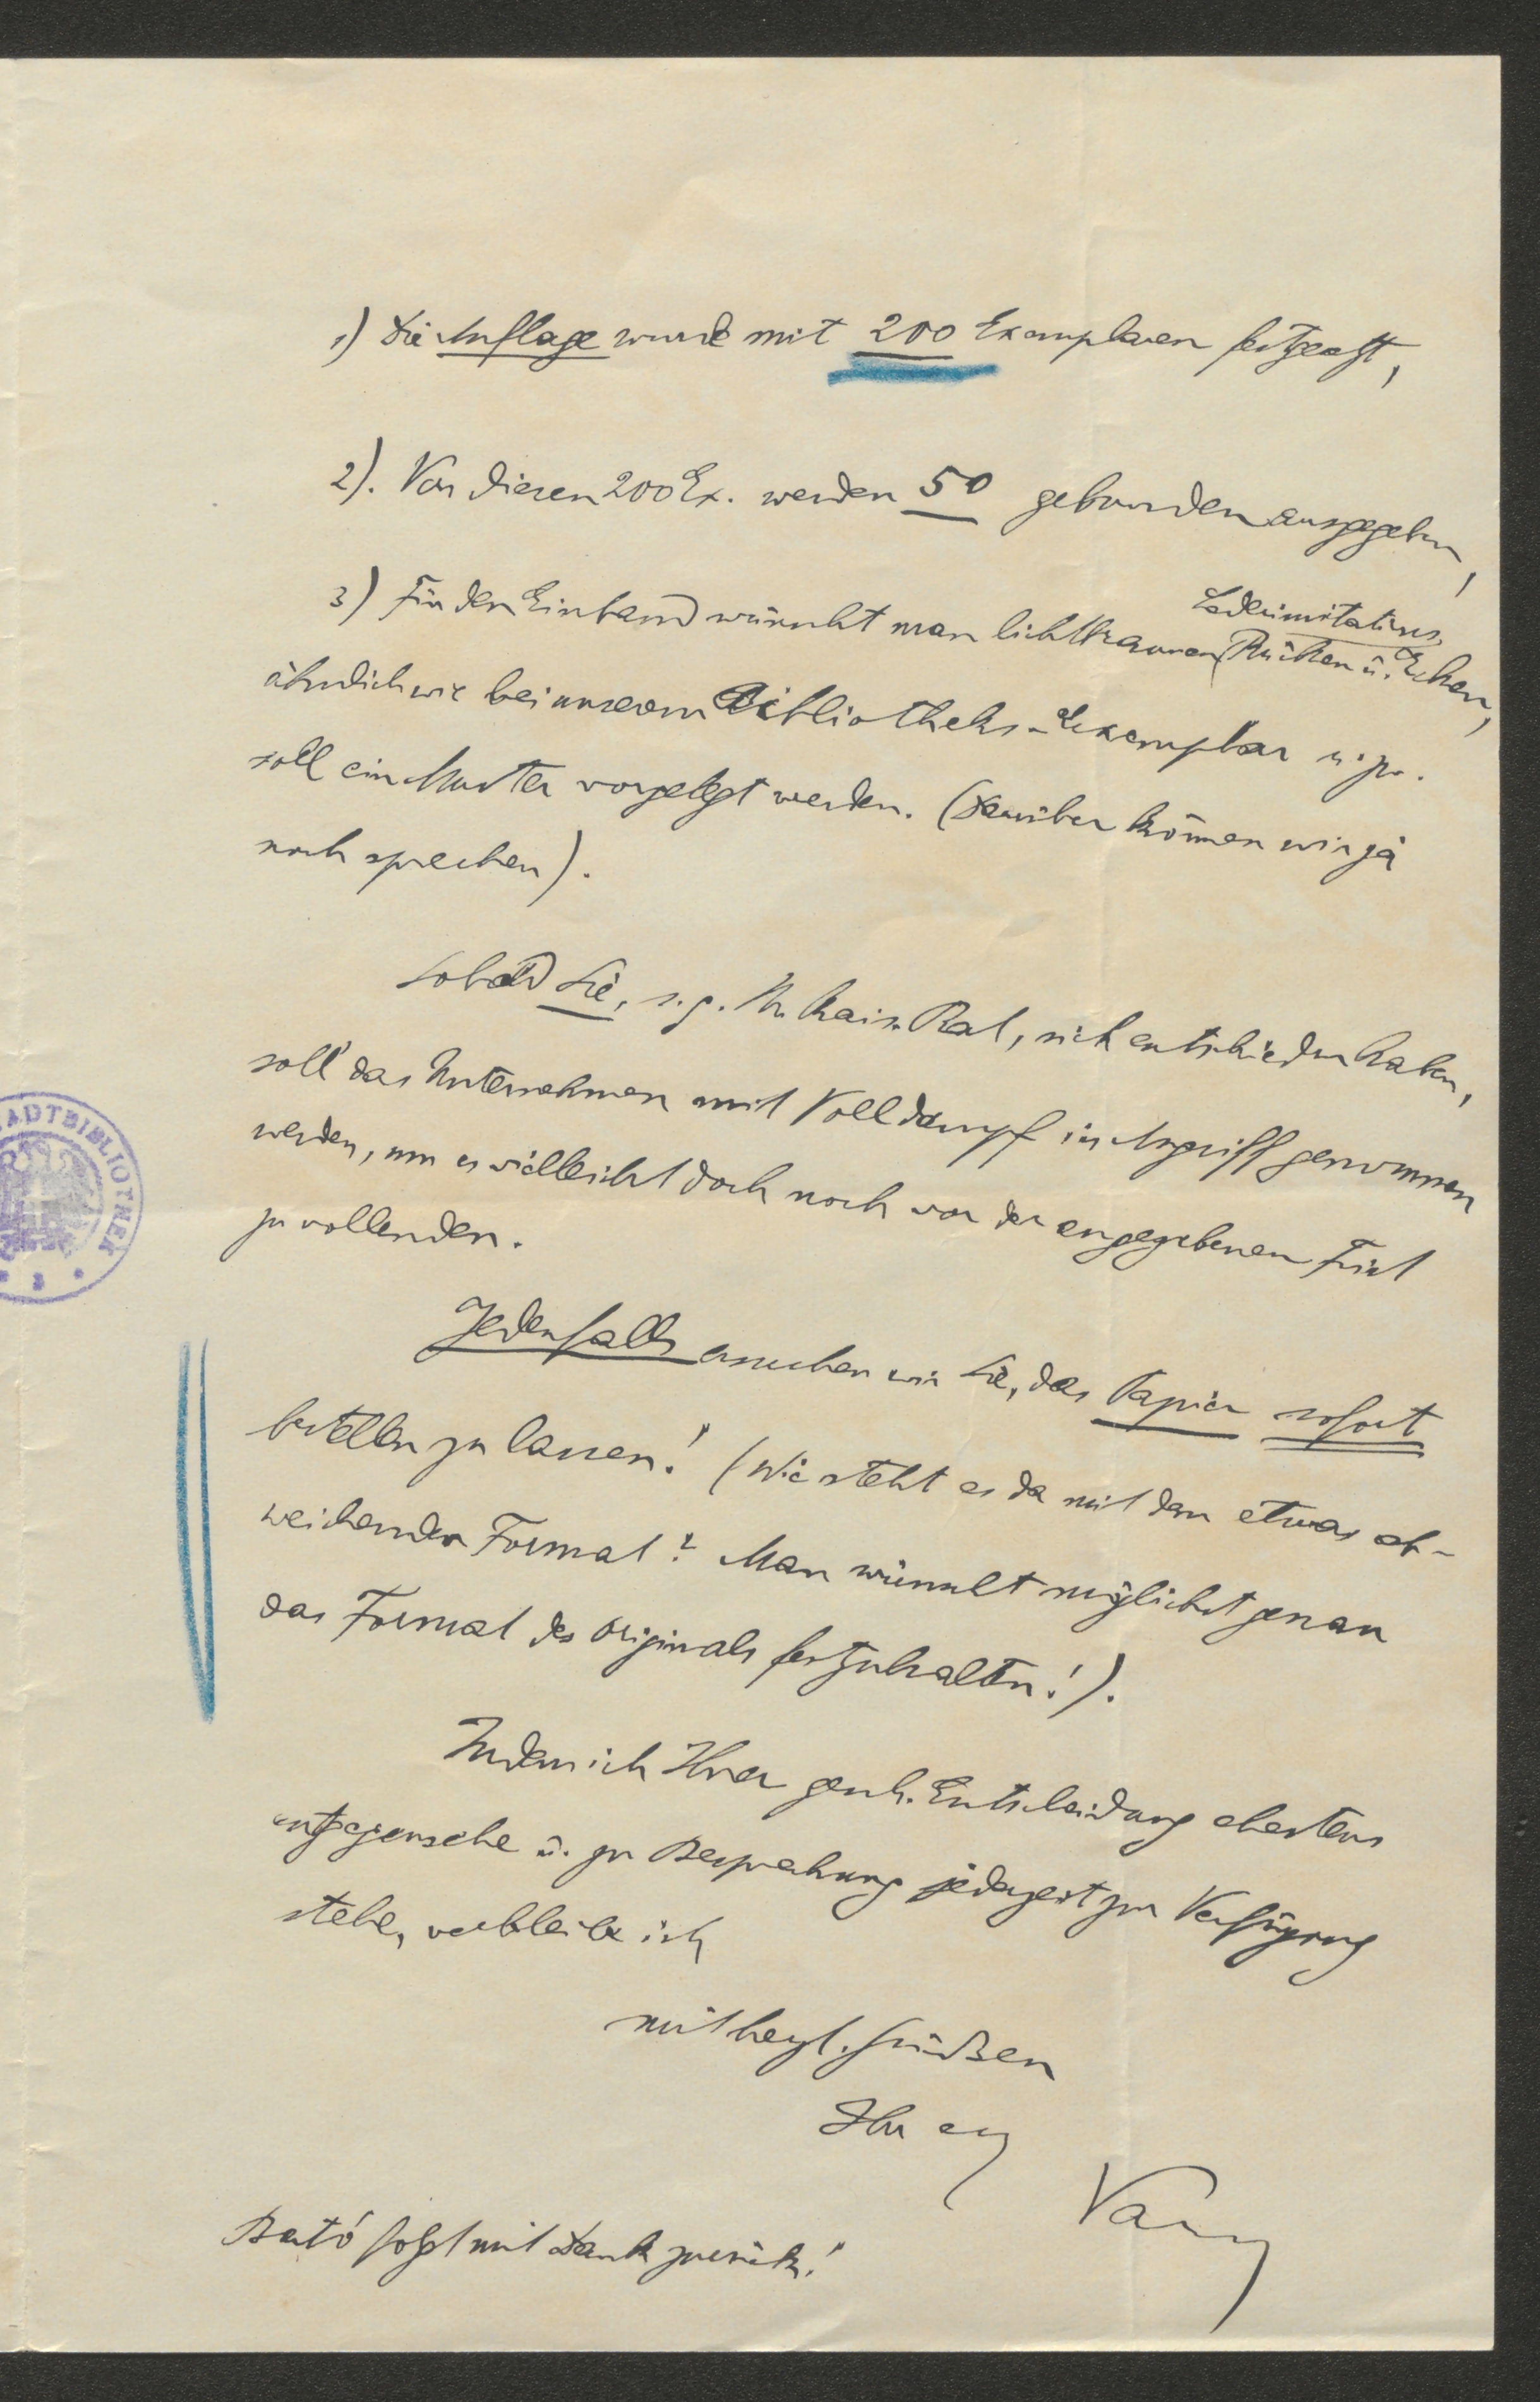 1) Die Auflage wurde mit 200 Exemplaren festgesetzt,
2). Von diesen 200 Ex. werden 50 gebunden ausgegeben,
3) Für den Einband wünscht man lichtbraunen Lederimitations-
Rücken u. Ecken,
ähnlich wie bei unserem Bibliotheks-Exemplar u. zw.
soll ein Muster vorgelegt werden. (Darüber können wir ja
noch sprechen).
Sobald Sie, s. g. Hr. Kais. Rat, sich entschieden haben,
soll das Unternehmen mit Volldampf in Angriff genommen
werden, um es vielleicht doch noch vor der angegebenen Frist
zu vollenden.
Jedenfalls ersuchen wir Sie, das Papier sofort
bestellen zu lassen! (Wie steht es da mit dem etwas ab-
weichenden Format? Man wünscht möglichst genau
das Format des Originals festzuhalten!).
Indem ich Ihrer gesch. Entscheidung ehestens
entgegensehe u. zu Besprechung jederzeit zur Verfügung
stehe, verbleibe ich
mit herzl. Grüßen
Ihr erg
folgt mit Dank zurück!
STADTBIBLIOTHEK